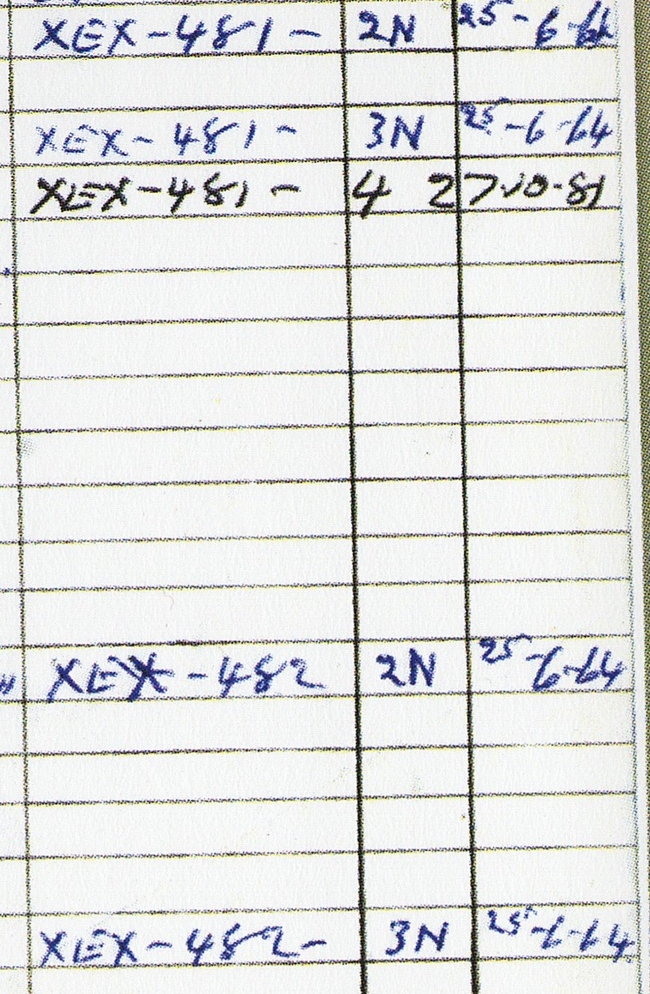 XEX-481- 2N 25-6-64
XEX-481- 3N 25-6-64
XEX-481- 4 27-10-81
" XEX-482 2N 25-6-64
XEX-482- 3N 25-6-64